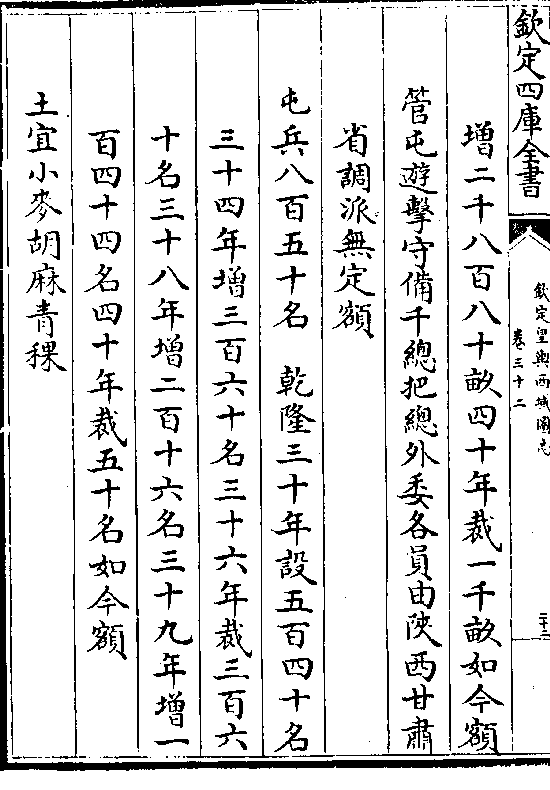 欽定四庫全書
欽定皇輿西域圖志
卷三十二
二十二
增二千八百八十畝四十年裁一千畝如今額
管屯遊擊守備千總把總外委各員由陝西甘肅
省調派無定額
屯兵八百五十名　乾隆三十年設五百四十名
三十四年增三百六十名三十六年裁三百六
十名三十八年增二百十六名三十九年增一
百四十四名四十年裁五十名如今額
土宜小麥胡麻青稞